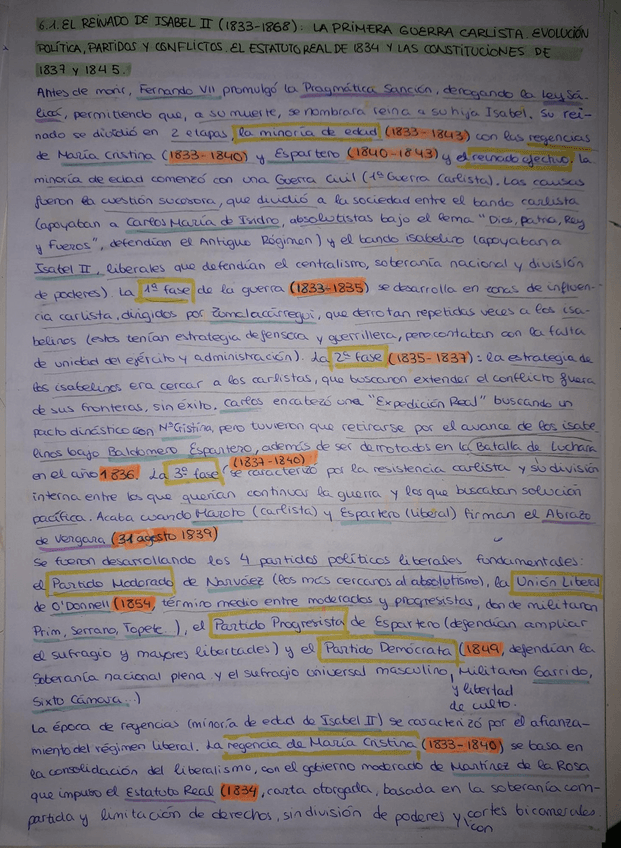 6.1. EL REINADO DE ISABEL II (1833-1868): LA PRIMERA GUERRA CARLISTA. EVOLUCIÓN
POLÍTICA, PARTIDOS Y CONFLICTOS. EL ESTATUTO REAL DE 1834 Y LAS CONSTITUCIONES DE
1837 Y 1845.
Antes de morir, Fernando VII promulgó la Pragmática Sanción, derogando la Ley Sá-
lica, permitiendo que, a su muerte, se nombrara reina a su hija Isabel. Su rei-
nado se dividió en 2 etapas, la minoría de edad (1833-1843) con las regencias
de María Cristina (1833-1840) y Espartero (1840-1843) y el reinado efectivo. La
minoría de edad comenzó con una Guerra Civil (1ª Guerra Carlista). Las causas
fueron la cuestión sucesora, que dividió a la sociedad entre el bando carlista
(apoyaban a Carlos María de Isidro, absolutistas bajo el lema "Dios, Patria, Rey
y Fueros", defendían el Antiguo Régimen) y el bando isabelino (apoyaban a
Isabel II, liberales que defendían el centralismo, soberanía nacional y división
de poderes). La 1ª fase de la guerra (1833-1835) se desarrolla en zonas de influen-
cia carlista, dirigidos por Zumalacárregui, que derrotan repetidas veces a los isa-
belinos (estos tenían estrategia defensora y guerrillera, pero contaban con la falta
de unidad del ejército y administración). La 2ª fase (1835-1837): la estrategia de
los isabelinos era cercar a los carlistas, que buscaron extender el conflicto fuera
de sus fronteras, sin éxito. Carlos encabezó una "Expedición Real" buscando un
pacto dinástico con Mª Cristina, pero tuvieron que retirarse por el avance de los isabe-
linos bajo Baldomero Espartero, además de ser derrotados en la Batalla de Luchana
en el año 1836. La 3ª fase (1837-1840) se caracterizó por la resistencia carlista y su división
interna entre los que querían continuar la guerra y los que buscaban solución
pacífica. Acaba cuando Maroto (carlista) y Espartero (liberal) firman el Abrazo
de Vergara (31 agosto 1839)
Se fueron desarrollando los 4 partidos políticos liberales fundamentales:
el Partido Moderado de Narváez (los más cercanos al absolutismo), la Unión Liberal
de O'Donnell (1854, término medio entre moderados y progresistas, donde militaron
Prim, Serrano, Topete...), el Partido Progresista de Espartero (defendían ampliar
el sufragio y mayores libertades) y el Partido Demócrata (1849, defendían la
soberanía nacional plena y el sufragio universal masculino, y libertad de culto. Militaron Garrido,
Sixto Cámara...)
La época de regencias (minoría de edad de Isabel II) se caracterizó por el afianza-
miento del régimen liberal. La regencia de María Cristina (1833-1840) se basa en
la consolidación del liberalismo, con el gobierno moderado de Martínez de la Rosa
que impuso el Estatuto Real (1834, carta otorgada, basada en la soberanía com-
partida y limitación de derechos, sin división de poderes y con cortes bicamerales.